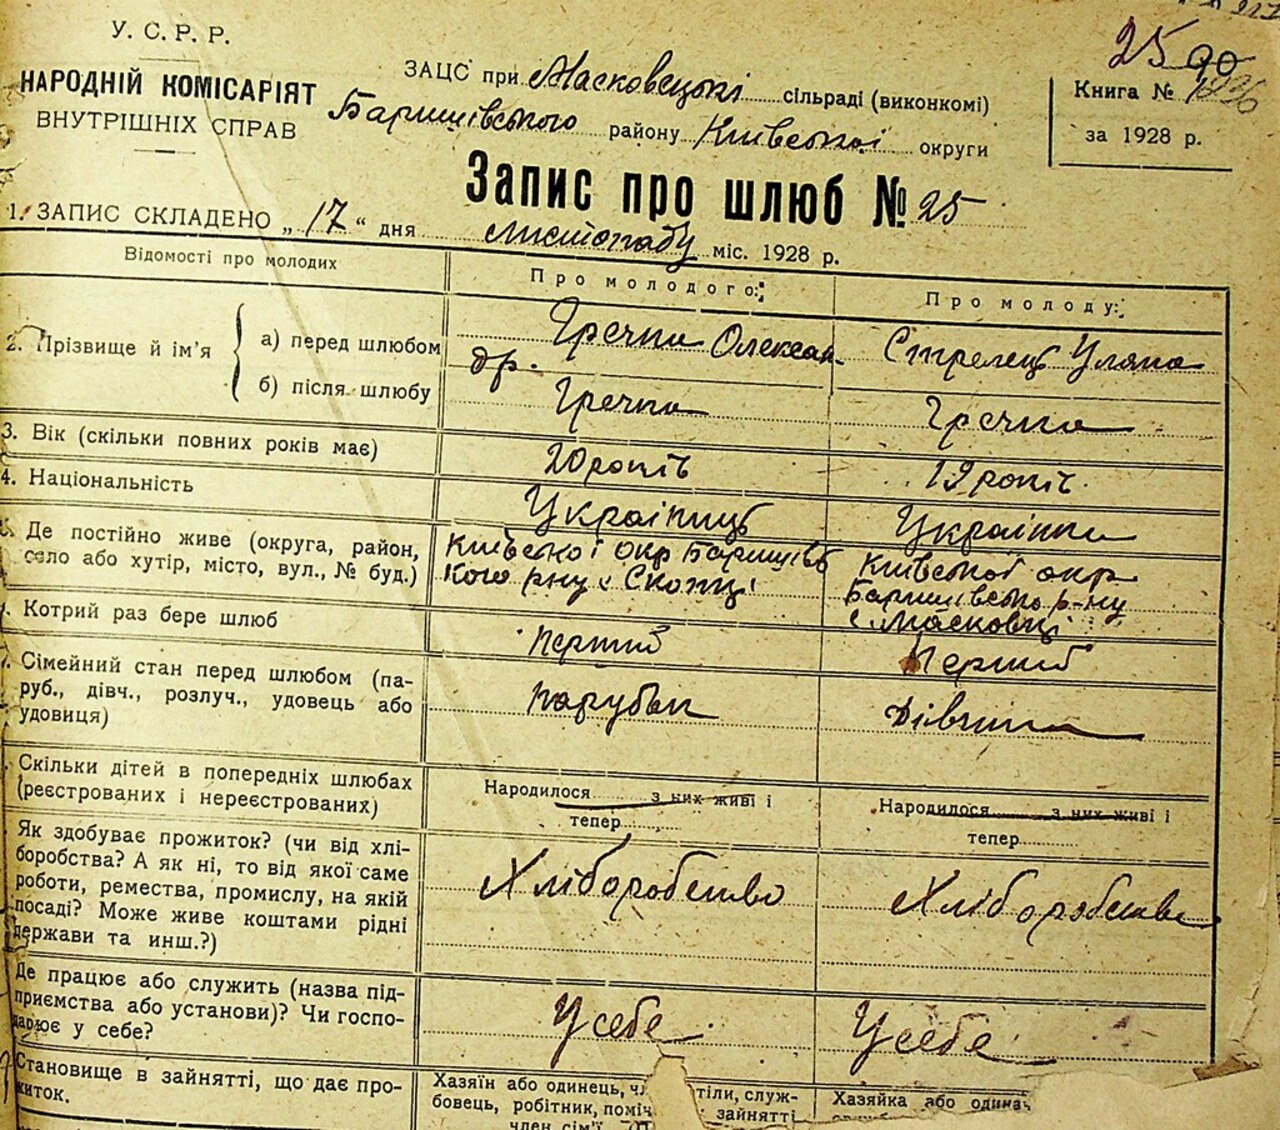 У. С. Р. Р.
НАРОДНІЙ КОМІСАРІЯТ
ВНУТРІШНІХ СПРАВ
ЗАЦС при Масковецькі сільраді (виконкомі)
Баришівського району Київської округи
25 90
Книга №
за 1928 р.
Запис про шлюб № 25
1. ЗАПИС СКЛАДЕНО „ 17 “ дня листопаду міс. 1928 р.
Відомості про молодих
Про молодого:
Про молоду:
2. Прізвище й ім'я
а) перед шлюбом
Гречка Олексан-
др.
Стрелець Уляна
б) після шлюбу
Гречка
Гречка
3. Вік (скільки повних років має)
20 років
19 років
4. Національність
Українець
Українка
Де постійно живе (округа, район,
село або хутір, місто, вул., № буд.)
Київської окр Баришівсь
кого рну с
Київської окр
Баришівсько р-ну
с. Масковці
Котрий раз бере шлюб
Перший
Перший
Сімейний стан перед шлюбом (па-
руб., дівч., розлуч., удовець або
удовиця)
Парубок
Дівчина
Скільки дітей в попередніх шлюбах
(реєстрованих і нереєстрованих)
Народилося з них живі і
тепер
Народилося з них живі і
тепер
Як здобуває прожиток? (чи від хлі-
боробства? А як ні, то від якої саме
роботи, ремества, промислу, на якій
посаді? Може живе коштами рідні
держави та инш.?)
Хліборобство
Хліборобство
Де працює або служить (назва під-
приємства або установи)? Чи госпо-
дарює у себе?
У себе
У себе
Становище в зайнятті, що дає про-
житок.
Хазяїн або одинець, чл тіли, служ-
бовець, робітник, поміч зайнятті
член сім'ї
Хазяйка або одинач